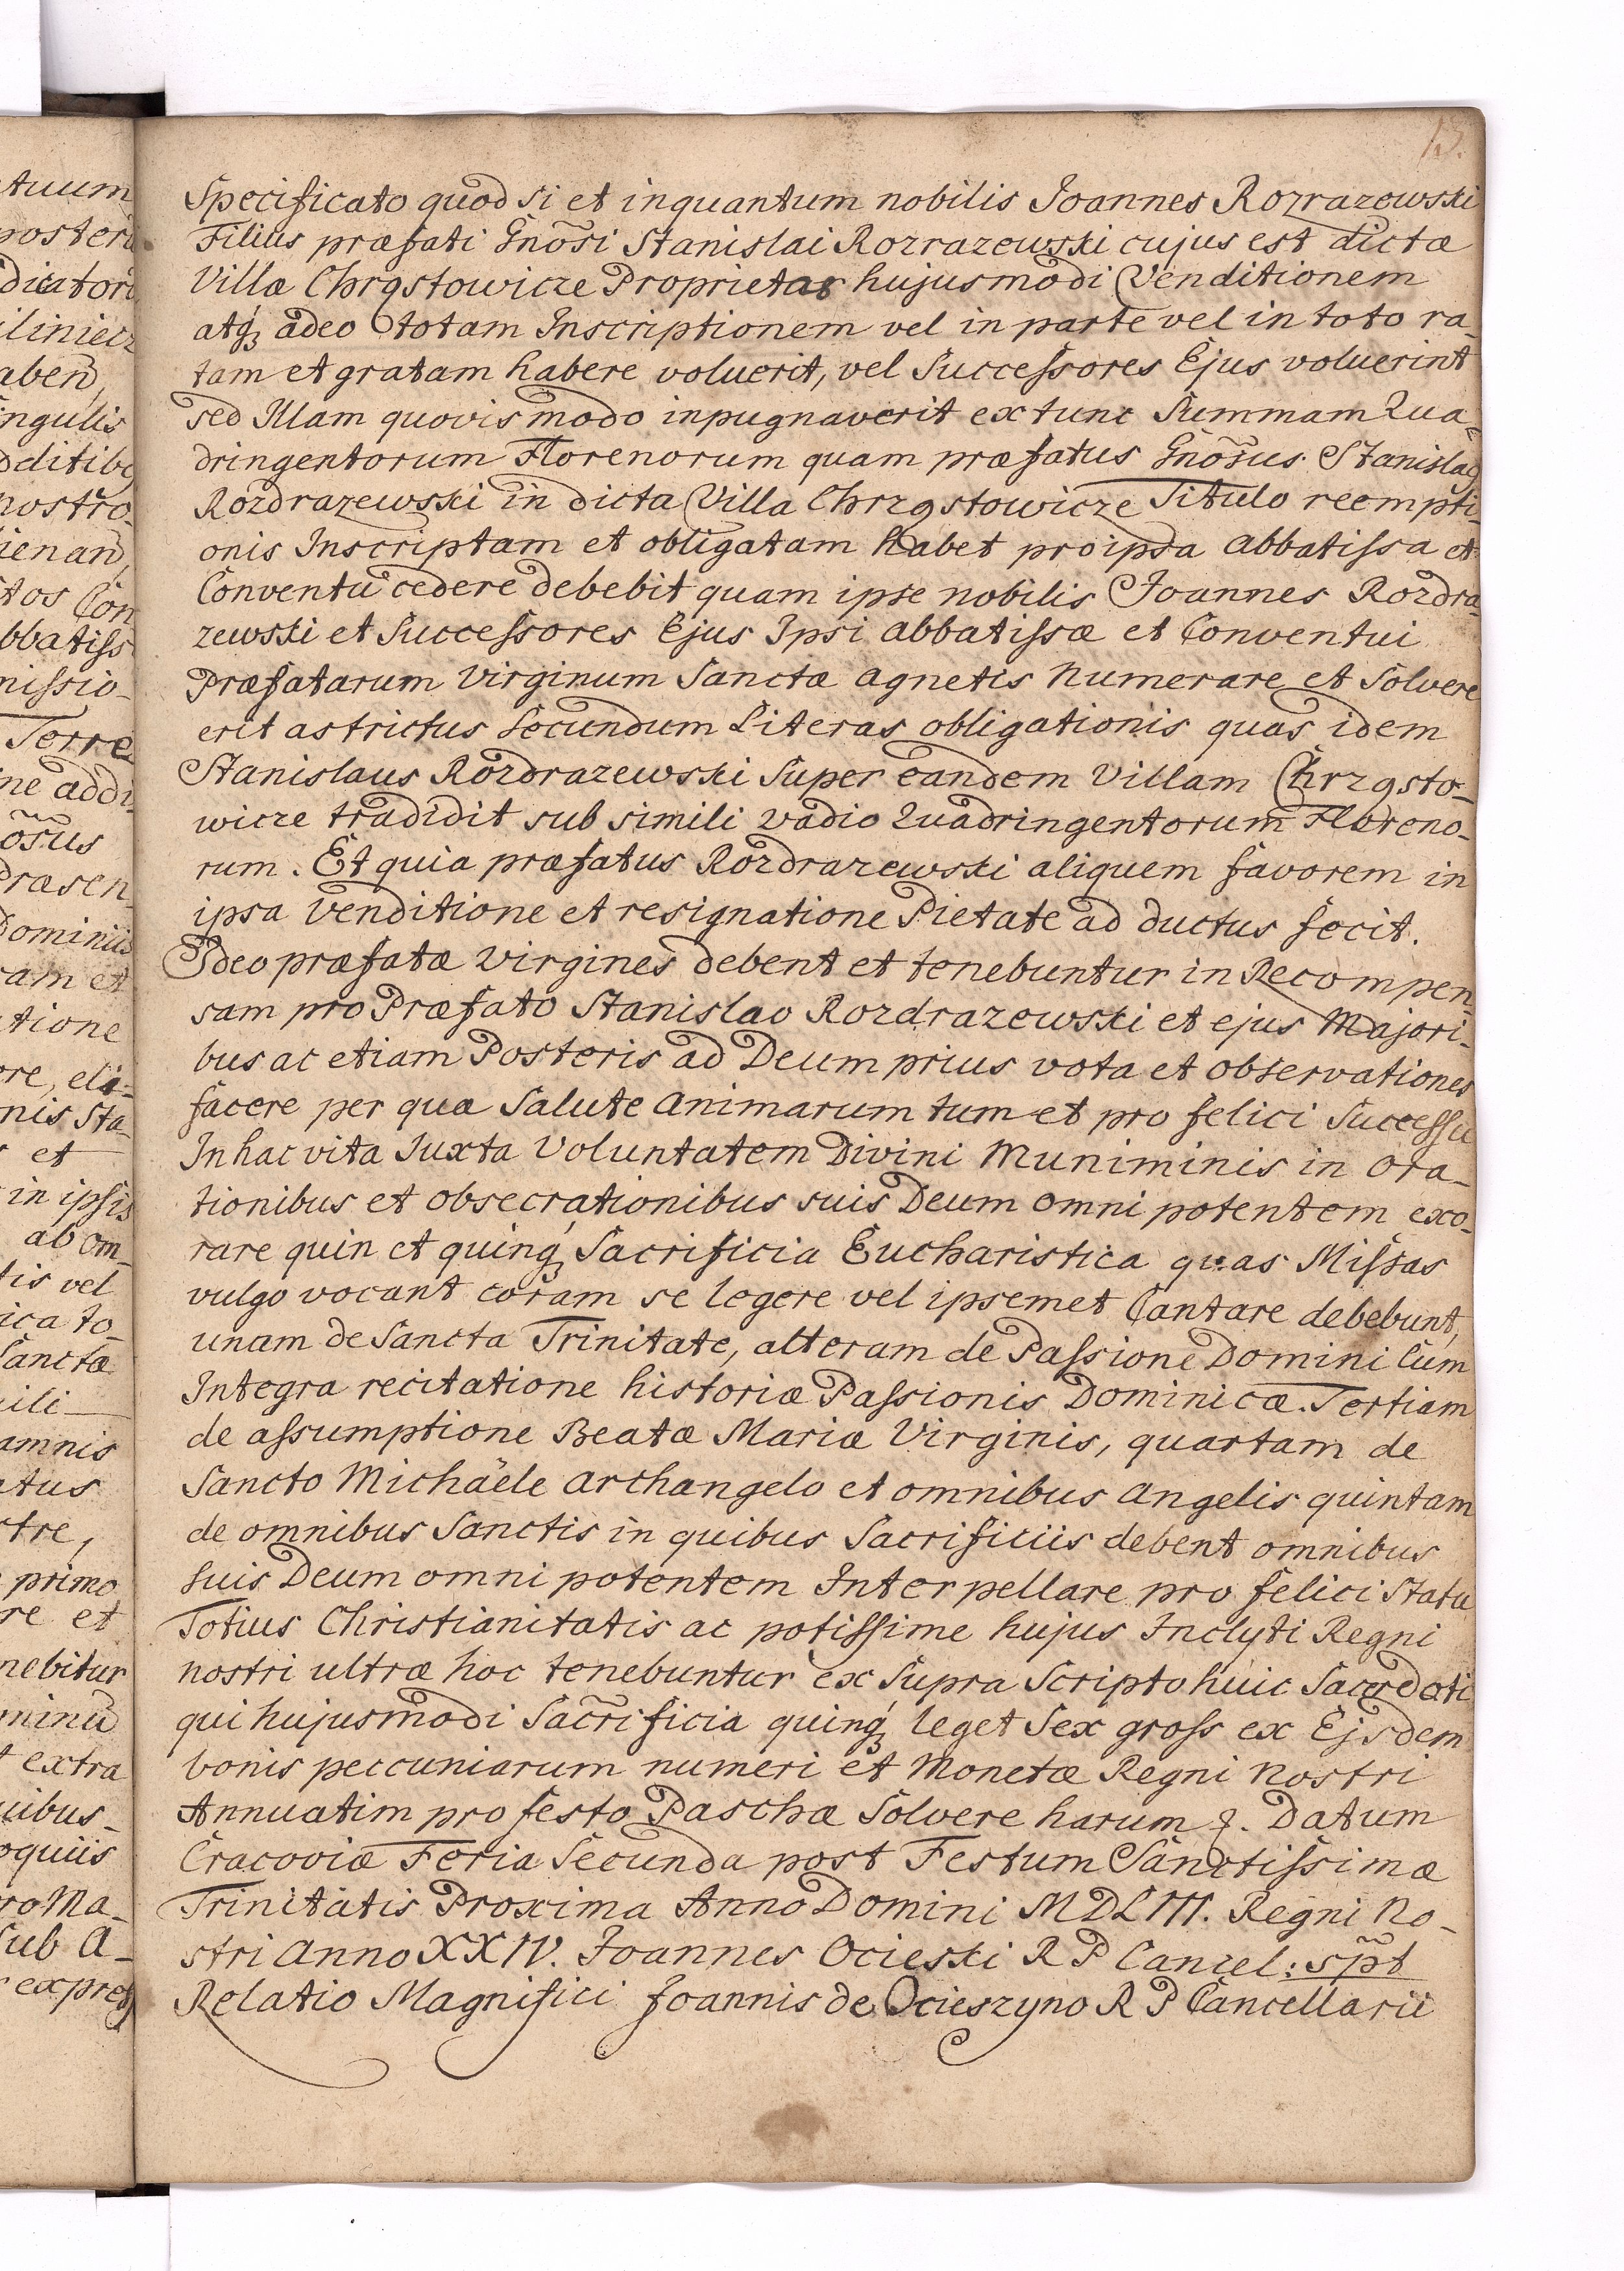 13.
Specificato quod si et inquantum nobilis Joannes Rozrazewski
Filius præfati Gnõsi Stanislai Rozrazewski cujus est dictæ
Villæ Chrqstowicze Proprietas hujusmodi Venditionem
atq́ȝ adeo totam Inscriptionem vel in parte vel in toto ra_
tam et gratam habere voluerit, vel Successores Ejus voluerint
sed Illam quovis modo inpugnaverit ex tunc Summam Qua_
dringentorum Florenorum quam præfatus Gnõsus Stanislaȝ
Rozdrazewski in dicta Villa Chrzqstowicze Titulo reempti_
onis Inscriptam et obligatam habet pro ipsa abbatissa et
Conventu cedere debebit quam ipse nobilis Joannes Rozdra_
zewski et Successores Ejus Ipsi abbatissæ et Conventui
Præfatarum Virginum Sanctæ Agnetis Numerare et Solvere
erit astrictus Secundum Literas obligationis quas idem
Stanislaus Rozdrazewski Super eandem Villam Chrzqsto_
wicze tradidit sub simili vadio Quadringentorum Floreno_
rum. Et quia præfatus Rozdrazewski aliquem favorem in
ipsa Venditione et resignatione Pietate ad ductus fecit.
Ideo præfatæ Virgines debent et tenebuntur in Recompen_
sam pro Præfato Stanislao Rozdrazewski et ejus Majori_
bus ac etiam Posteris ad Deum prius vota et observationes
facere per qua Salute Animarum tum et pro felici Successu
In hac vita Juxta Voluntatem Divini Muniminis in Ora_
tionibus et obsecrationibus suis Deum omni potentem exo_
rare quin et quinq́ȝ Sacrificia Eucharistica quas Missas
vulgo vocant coram se legere vel ipsemet Cantare debebunt,
unam de Sancta Trinitate, alteram de Passione Domini Cum
Integra recitatione historiæ Passionis Dominicæ. Tertiam
de assumptione Beatæ Mariæ Virginis, quartam de
Sancto Michäele Archangelo et omnibus Angelis quintam
de omnibus Sanctis in quibus Sacrificiis debent omnibus
suis Deum omni potentem Interpellare pro felici Statu
Totius Christianitatis ac potissime hujus Inclyti Regni
nostri ultræ hoc tenebuntur ex Supra Scripto huic Sacerdoti
qui hujusmodi Sacrificia quinq́ȝ leget Sex gross ex Ejsdem
bonis peccuniarum numeri et Monetæ Regni Nostri
Annuatim pro festo Paschæ Solvere harum &. Datum
Cracoviæ Feria Secunda post Festum Sanctissimæ
Trinitatis Proxima Anno Domini MDLIII. Regni No_
stri Anno XXIV. Joannes Ocieski R P Cancel: sp̃t
Relatio Magnifici Joannis de Ocieszyno R P Cancellarii